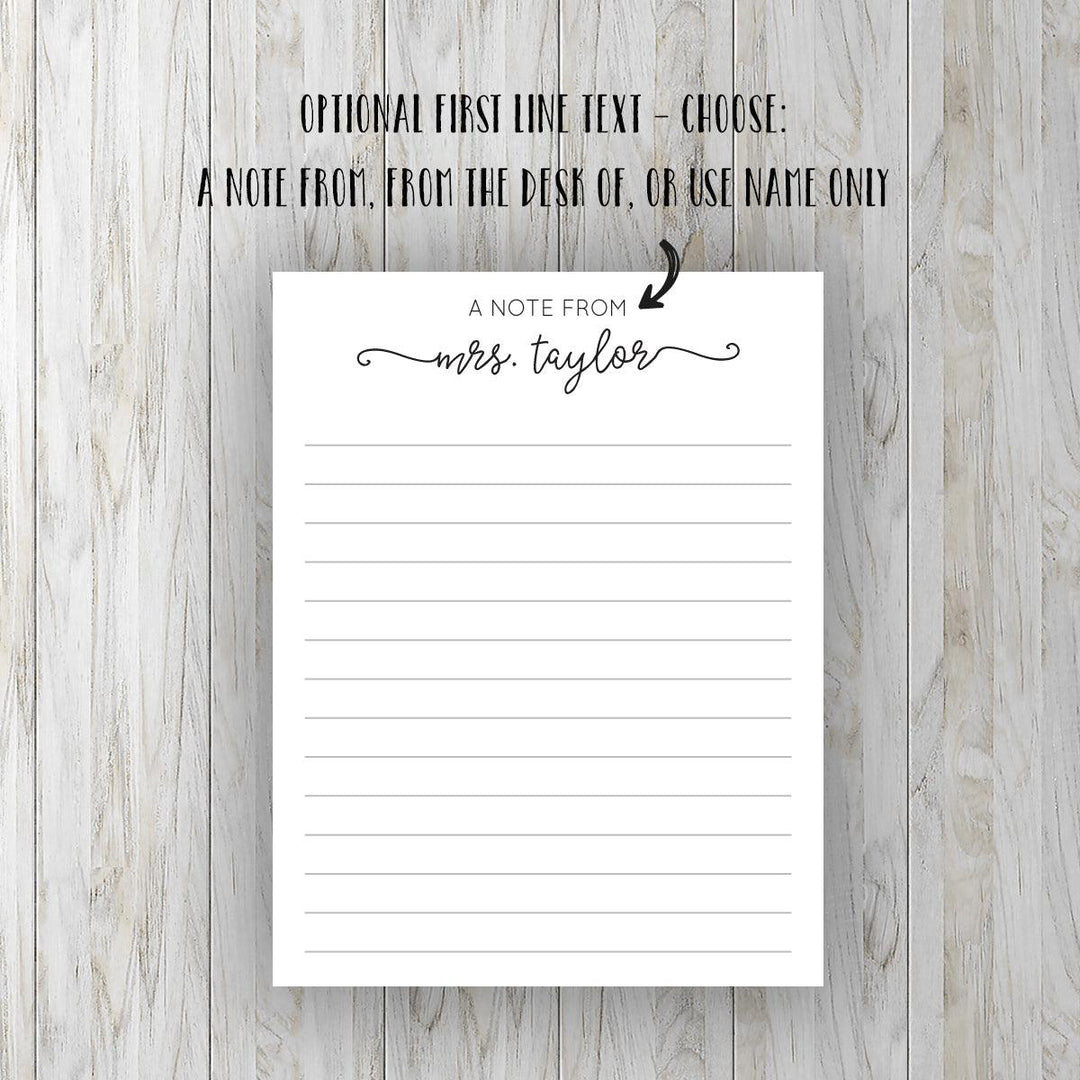 OPTIONAL FIRST LINE TEXT – CHOOSE:
A NOTE FROM, FROM THE DESK OF, OR USE NAME ONLY
A NOTE FROM
mrs. taylor